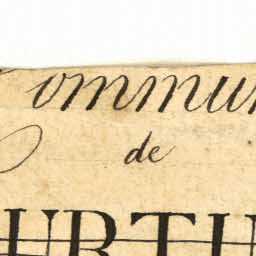 Commun
de
URTU